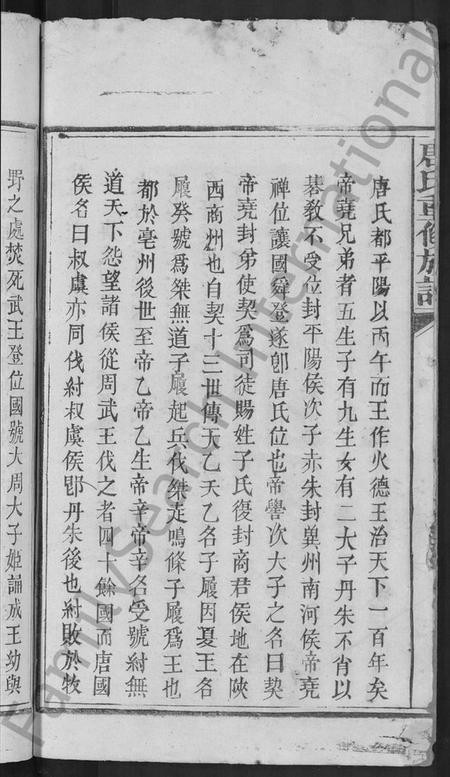 唐氏重修族譜
唐氏都平陽以丙午而王作火德王治天下一百年矣
帝堯兄弟者五生子有九生女有二大子丹朱不肖以
棊教不受位封平陽侯次子赤朱封冀州南河侯帝堯
禪位讓國舜登遂卽唐氏位也帝嚳次大子之名曰契
帝堯封弟使契爲司徒賜姓子氏復封商君侯地在陝
西商州也自契十三世傳天乙天乙名子履因夏王名
履癸號爲桀無道子履起兵伐桀走鳴條子履爲王也
都於亳州後世至帝乙帝乙生帝辛帝辛名受號紂無
道天下怨望諸侯從周武王伐之者四十餘國而唐國
侯名曰叔虞亦同伐紂叔虞侯卽丹朱後也紂敗於牧
野之處焚死武王登位國號大周大子姬誦成王幼與
FamilySearch International